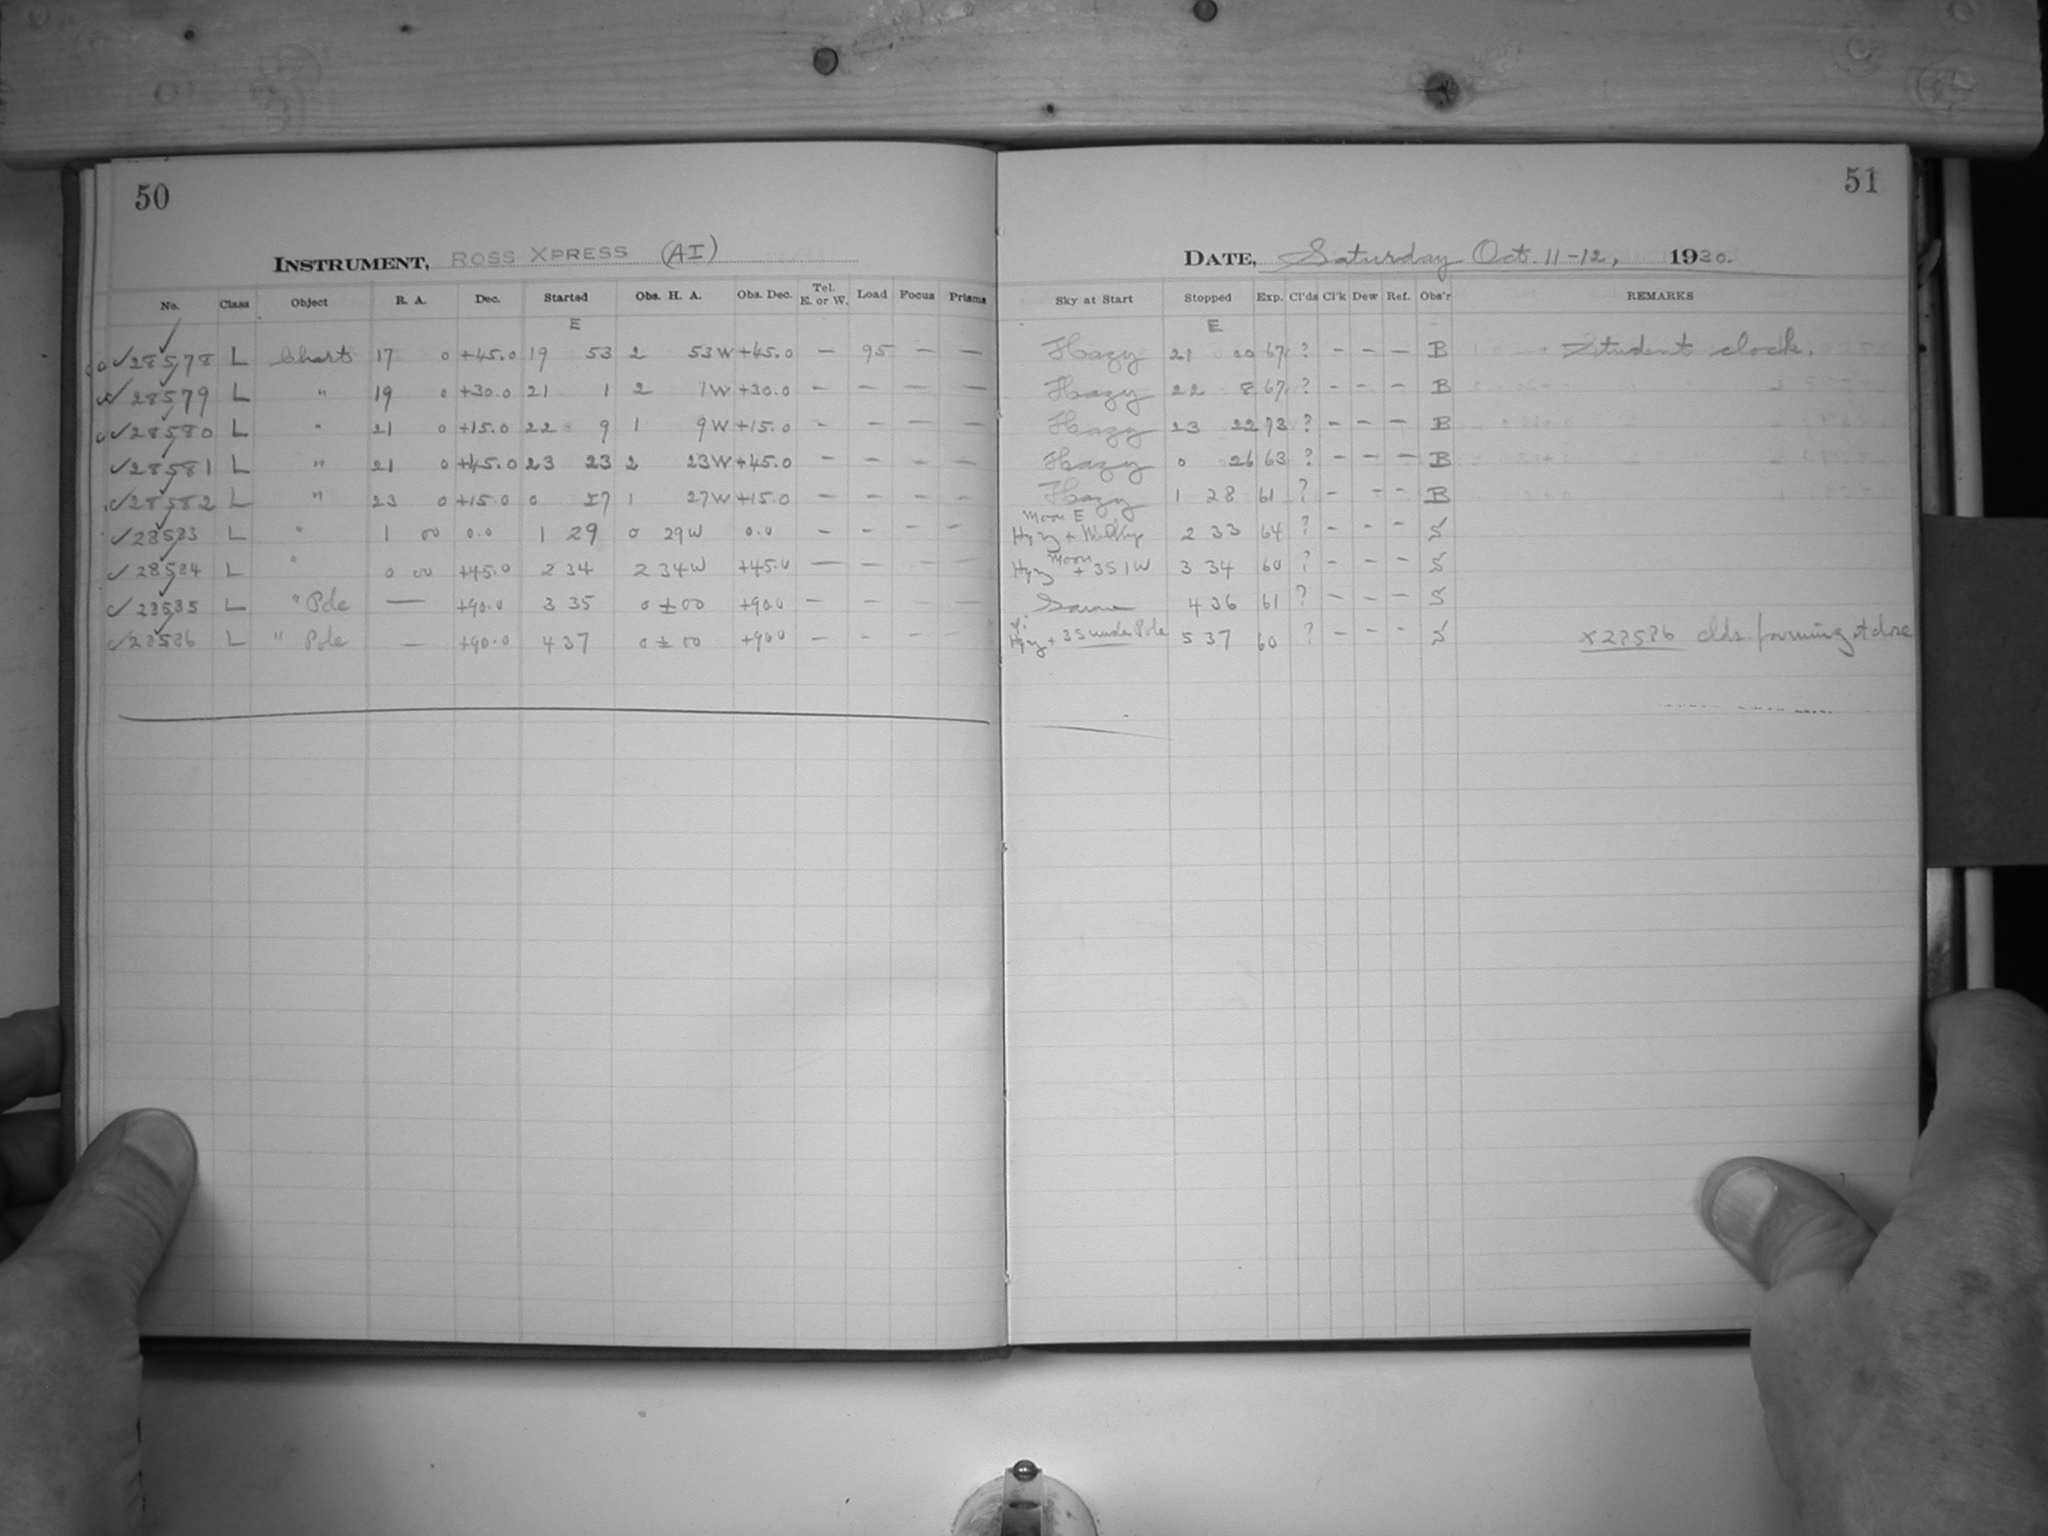 50
INSTRUMENT, ROSS XPRESS (AI)
No. Class Object R. A. Dec. Started Obs. H. A. Obs. Dec. Tel. E. or W. Load Focus Prisms
E
✓28578 L Chart 17 0 +45.0 19 53 2 53W +45.0 – 95 – –
✓28579 L " 19 0 +30.0 21 1 2 1W +30.0 – – – –
✓28580 L " 21 0 +15.0 22 9 1 9W +15.0 – – – –
✓28581 L " 21 0 +45.0 23 23 2 23W +45.0 – – – –
✓28582 L " 23 0 +15.0 0 27 1 27W +15.0 – – – –
✓28583 L " 1 00 0.0 1 29 0 29W 0.0 – – – –
✓28584 L " 0 00 +45.0 2 34 2 34W +45.0 – – – –
✓28585 L " Pole — +90.0 3 35 0 ± 00 +90.0 – – – –
✓28586 L " Pole — +90.0 4 37 0 ± 00 +90.0 – – – –
51
DATE, Saturday Oct. 11-12, 1930.
Sky at Start Stopped Exp. Cl'ds Cl'k Dew Ref. Obs'r REMARKS
E
Hazy 21 00 67 ? – – – B Student clock.
Hazy 22 8 67 ? – – – B
Hazy 23 22 73 ? – – – B
Hazy 0 26 63 ? – – – B
Hazy 1 28 61 ? – – – B
Moon E
Hazy + Milky 2 33 64 ? – – – S
Hazy Moon + 3S 1W 3 34 60 ? – – – S
Same 4 36 61 ? – – – S
Hazy + 3S under Pole 5 37 60 ? – – – S x28586 clds forming at close